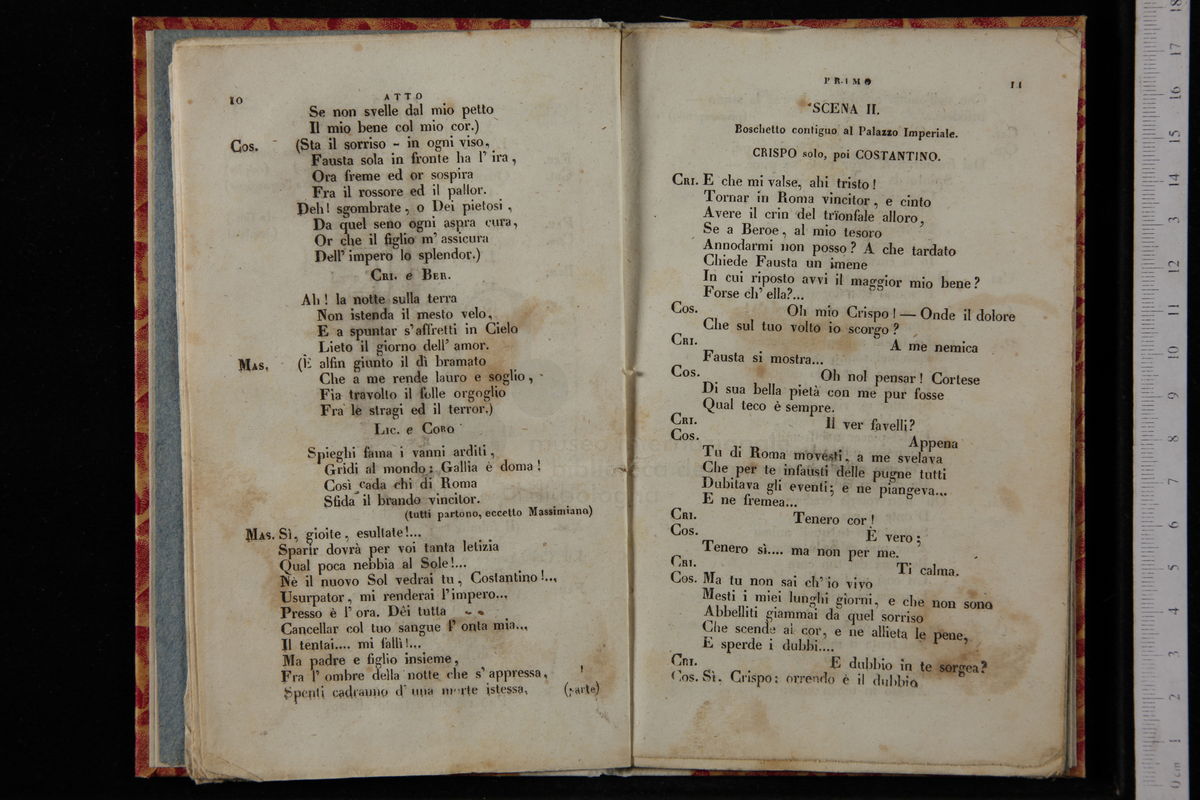 10
ATTO
Se non svelle dal mio petto
Il mio bene col mio cor.)
Cos. (Sta il sorriso - in ogni viso,
Fausta sola in fronte ha l' ira,
Ora freme ed or sospira
Fra il rossore ed il pallor.
Deh! sgombrate, o Dei pietosi,
Da quel seno ogni aspra cura,
Or che il figlio m' assicura
Dell' impero lo splendor.)
Cri. e Ber.
Ah! la notte sulla terra
Non istenda il mesto velo,
E a spuntar s' affretti in Cielo
Lieto il giorno dell' amor.
Mas. (È alfin giunto il dì bramato
Che a me rende lauro e soglio,
Fia travolto il folle orgoglio
Fra le stragi ed il terror.)
Lic. e Coro
Spieghi fama i vanni arditi,
Gridi al mondo: Gallia è doma!
Così cada chi di Roma
Sfida il brando vincitor.
(tutti partono, eccetto Massimiano)
Mas. Sì, gioite, esultate!...
Sparir dovrà per voi tanta letizia
Qual poca nebbia al Sole!...
Nè il nuovo Sol vedrai tu, Costantino!...
Usurpator, mi renderai l' impero...
Presso è l' ora. Dêi tutta
Cancellar col tuo sangue l' onta mia...
Il tentai.... mi fallì!...
Ma padre e figlio insieme,
Fra l' ombre della notte che s' appressa,
Spenti cadranno d' una morte istessa. (parte)
PRIMO
11
SCENA II.
Boschetto contiguo al Palazzo Imperiale.
CRISPO solo, poi COSTANTINO.
Cri. E che mi valse, ahi tristo!
Tornar in Roma vincitor, e cinto
Avere il crin del trïonfale alloro,
Se a Beroe, al mio tesoro
Annodarmi non posso? A che tardato
Chiede Fausta un imene
In cui riposto avvi il maggior mio bene?
Forse ch' ella?...
Cos. Oh mio Crispo! — Onde il dolore
Che sul tuo volto io scorgo?
Cri. A me nemica
Fausta si mostra...
Cos. Oh nol pensar! Cortese
Di sua bella pietà con me pur fosse
Qual teco è sempre.
Cri. Il ver favelli?
Cos. Appena
Tu di Roma movesti, a me svelava
Che per te infausti delle pugne tutti
Dubitava gli eventi; e ne piangeva...
E ne fremea...
Cri. Tenero cor!
Cos. È vero;
Tenero sì.... ma non per me.
Cri. Ti calma.
Cos. Ma tu non sai ch' io vivo
Mesti i miei lunghi giorni, e che non sono
Abbelliti giammai da quel sorriso
Che scende al cor, e ne allieta le pene,
E sperde i dubbi....
Cri. E dubbio in te sorgea?
Cos. Sì, Crispo: orrendo è il dubbio